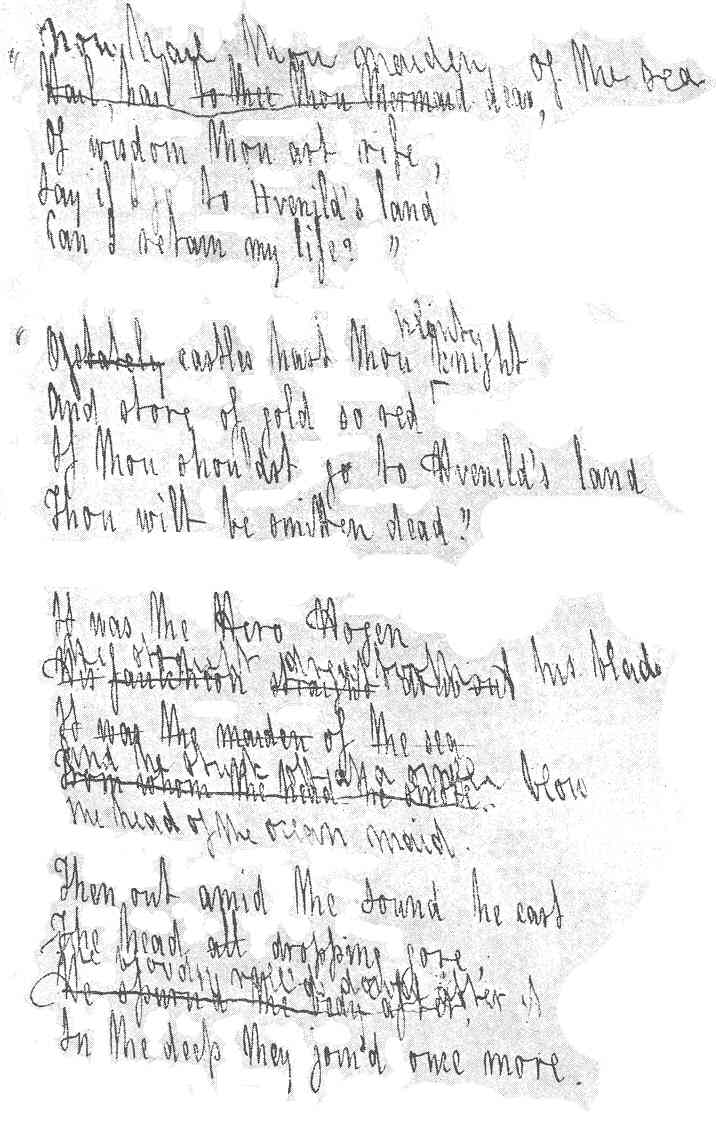 hail thou maiden, of the sea
"Hail, hail to thee thou Mermaid dear,
Of wisdom thou art rife,
Say if I go to Hvenild's land
Can I retain my life? "
mighty
"Of stately castles hast thou knight
And store of gold so red
If thou shouldst go to Hvenild's land
Thou wilt be smitten dead."
It was the Hero Hogen
his blade
His faulchion straight out
It was the maiden of the sea
And he struck a blow
From whom the head he smote.
The head of the ocean maid.
Then out amid the Sound he cast
The head all dropping gore,
The body
He spurned the body after it
In the deep they join'd once more.